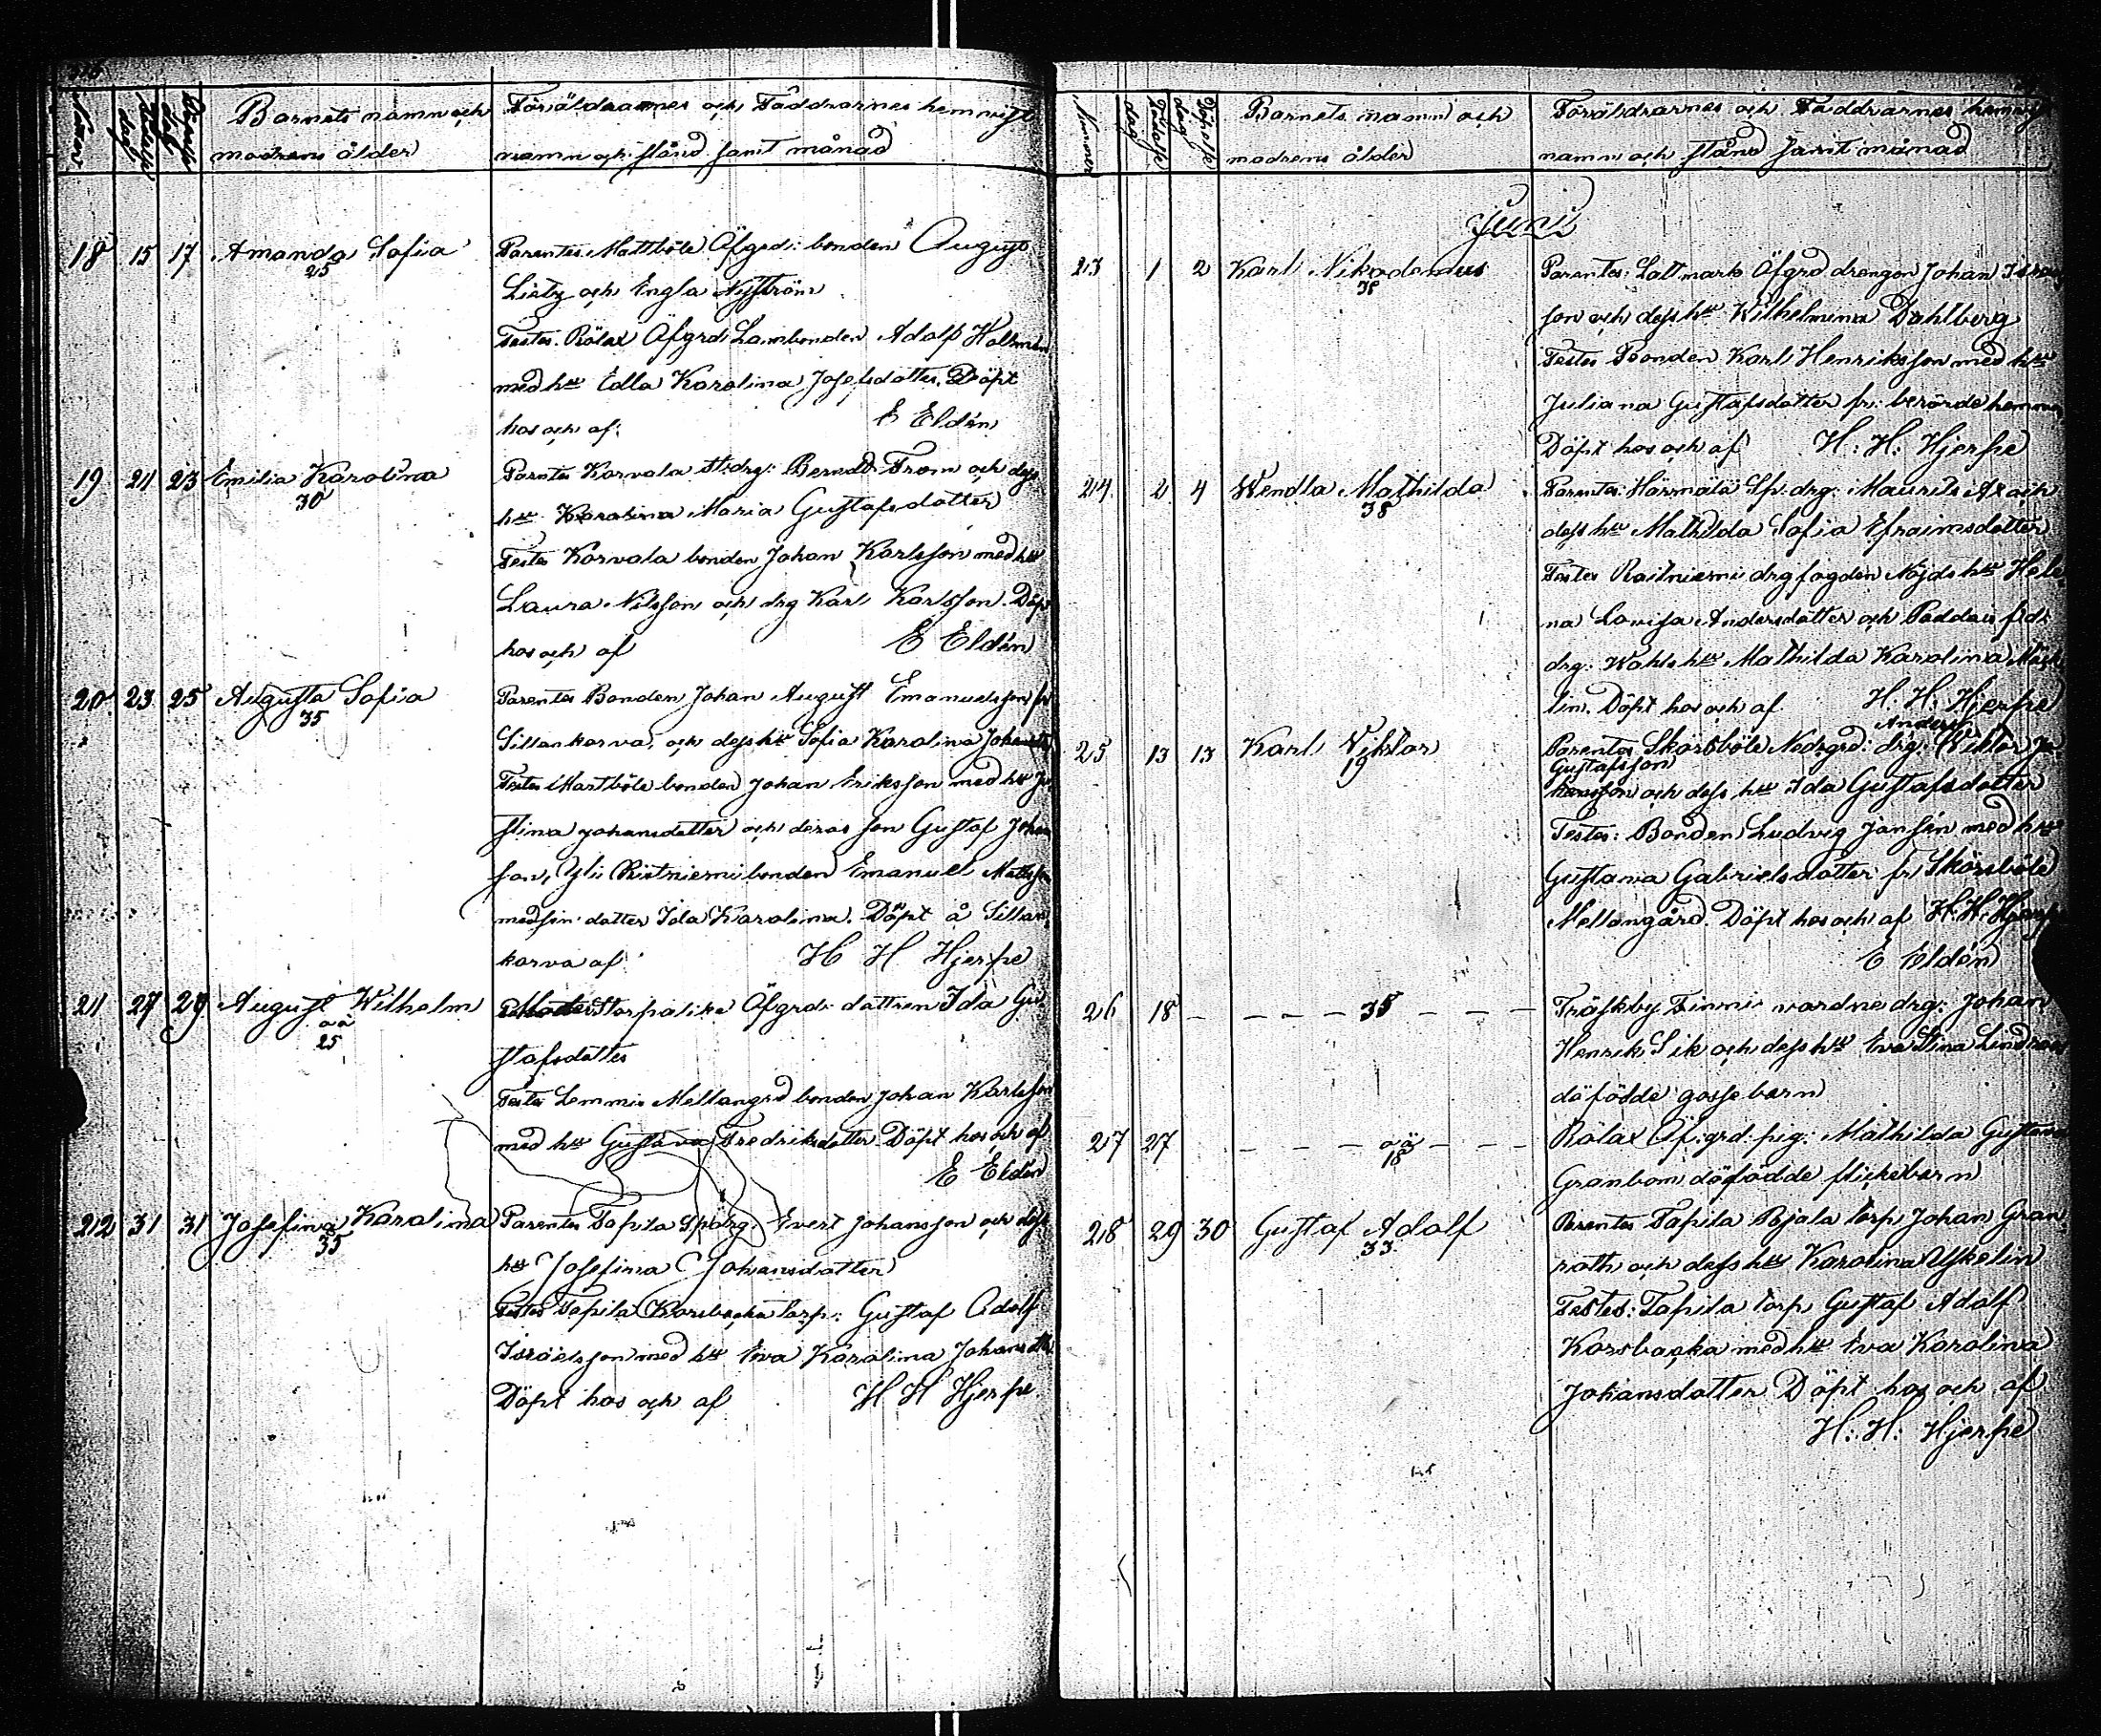 Numer
Födelse dag
Döpelse dag
Barnets namn och
modrens ålder
Föräldrarnes och Faddrarnes hemvist
namn och stånd samt månad
18 15 17 Amanda Sofia
25
Parentes Mattböle Öfgrd: bonden August
Lietz och Engla Nyström
Testes. Rölax Öfgrds Lambonden Adolf Holmén
med hu Edla Karolina Josefsdotter. Döpt
hos och af: E Eldén
19 21 23 Emilia Karolina
30
Parentes Korvala st:drg: Berndt From och dess
hu Karolina Maria Gustafsdotter
Testes Korvala bonden Johan Karlsson med hu
Laura Nilsson och drg Karl Karlsson. Döpt
hos och af E Eldén
20 23 25 Augusta Sofia
35
Parentes Bonden Johan August Emanuelsson fr
Sillankorva, och dess hu Sofia Karolina
Testes Martböle bonden Johan Eriksson med hu Ju
stina Johansdotter och deras son Gustaf Johan
son, Yli Ristniemi bonden Emanuel Mattsson
med sin dotter Ida Karolina. Döpt å Sillan
korva af: H H Hjerpe
21 27 29 August Wilhelm
oä
25
Moder Storpalike Öfgrds dottren Ida Gu
stafsdotter
Testes Lemmis Mellangrd bonden Johan Karlsson
med hu Gustava Fredriksdotter Döpt hos och af
E Eldén
22 31 31 Josefina Karolina
35
Parentes Tapila Spdrg. Evert Johansson och dess
hu Josefina Johansdotter
Testes Tapila Korsbacka torp: Gustaf Adolf
Israelsson med hu Eva Karolina Johansdtr
Döpt hos och af H H Hjerpe
Numer
Födelse dag
Döpelse dag
Barnets namn och
modrens ålder
Föräldrarnes och Faddrarnes hemvist
namn och stånd samt månad
Juni
23 1 2 Karl Nikodemus
38
Parentes: Lattmark Öfgrd drengen Johan Israels
son och dess hu Wilhelmina Dahlberg
Testes Bonden Karl Henriksson med hu
Juliana Gustafsdotter fr: berörde hemman
Döpt hos och af H: H: Hjerpe
24 2 4 Wendla Mathilda
38
Parentes: Härmälä Sp. drg: Maurits Ax och
dess hu Mathilda Sofia Efraimsdotter
Testes Roitniemi drg fogden Nöjds hu Hele
na Lovisa Andersdotter och Paddais
drg: Wahls hu Mathilda Karolina
lin. Döpt hos och af H. H. Hjerpe
25 13 13 Karl Viktor
19
Anders
Parentes Skärsböle Nedrgrd: drg: Wiktor Jo
Gustafsson
hansson och dess hu Ida Gustafsdotter
Testes: Bonden Ludvig Jansén med hu
Gustava Gabrielsdotter fr Skärsböle
Mellangård. Döpt hos och af H: H: Hjerpe
E Eldén
26 18 – – – – 35 – – –
Träskby Finni vardne drg: Johan
Henrik Sik och dess hu Eva Stina Lindroos
döfödde gossebarn
27 27 – – – oä – – –
18
Rölax Öf:grd: pig: Mathilda Gustava
Granbom döfödde flickebarn
28 29 30 Gustaf Adolf
33
Parentes Tapila Bjala torp Johan Gran
roth och dess hu Karolina Uskelin
Testes: Tapila torp Gustaf Adolf
Korsbacka med hu Eva Karolina
Johansdotter Döpt hos och af
H: H: Hjerpe